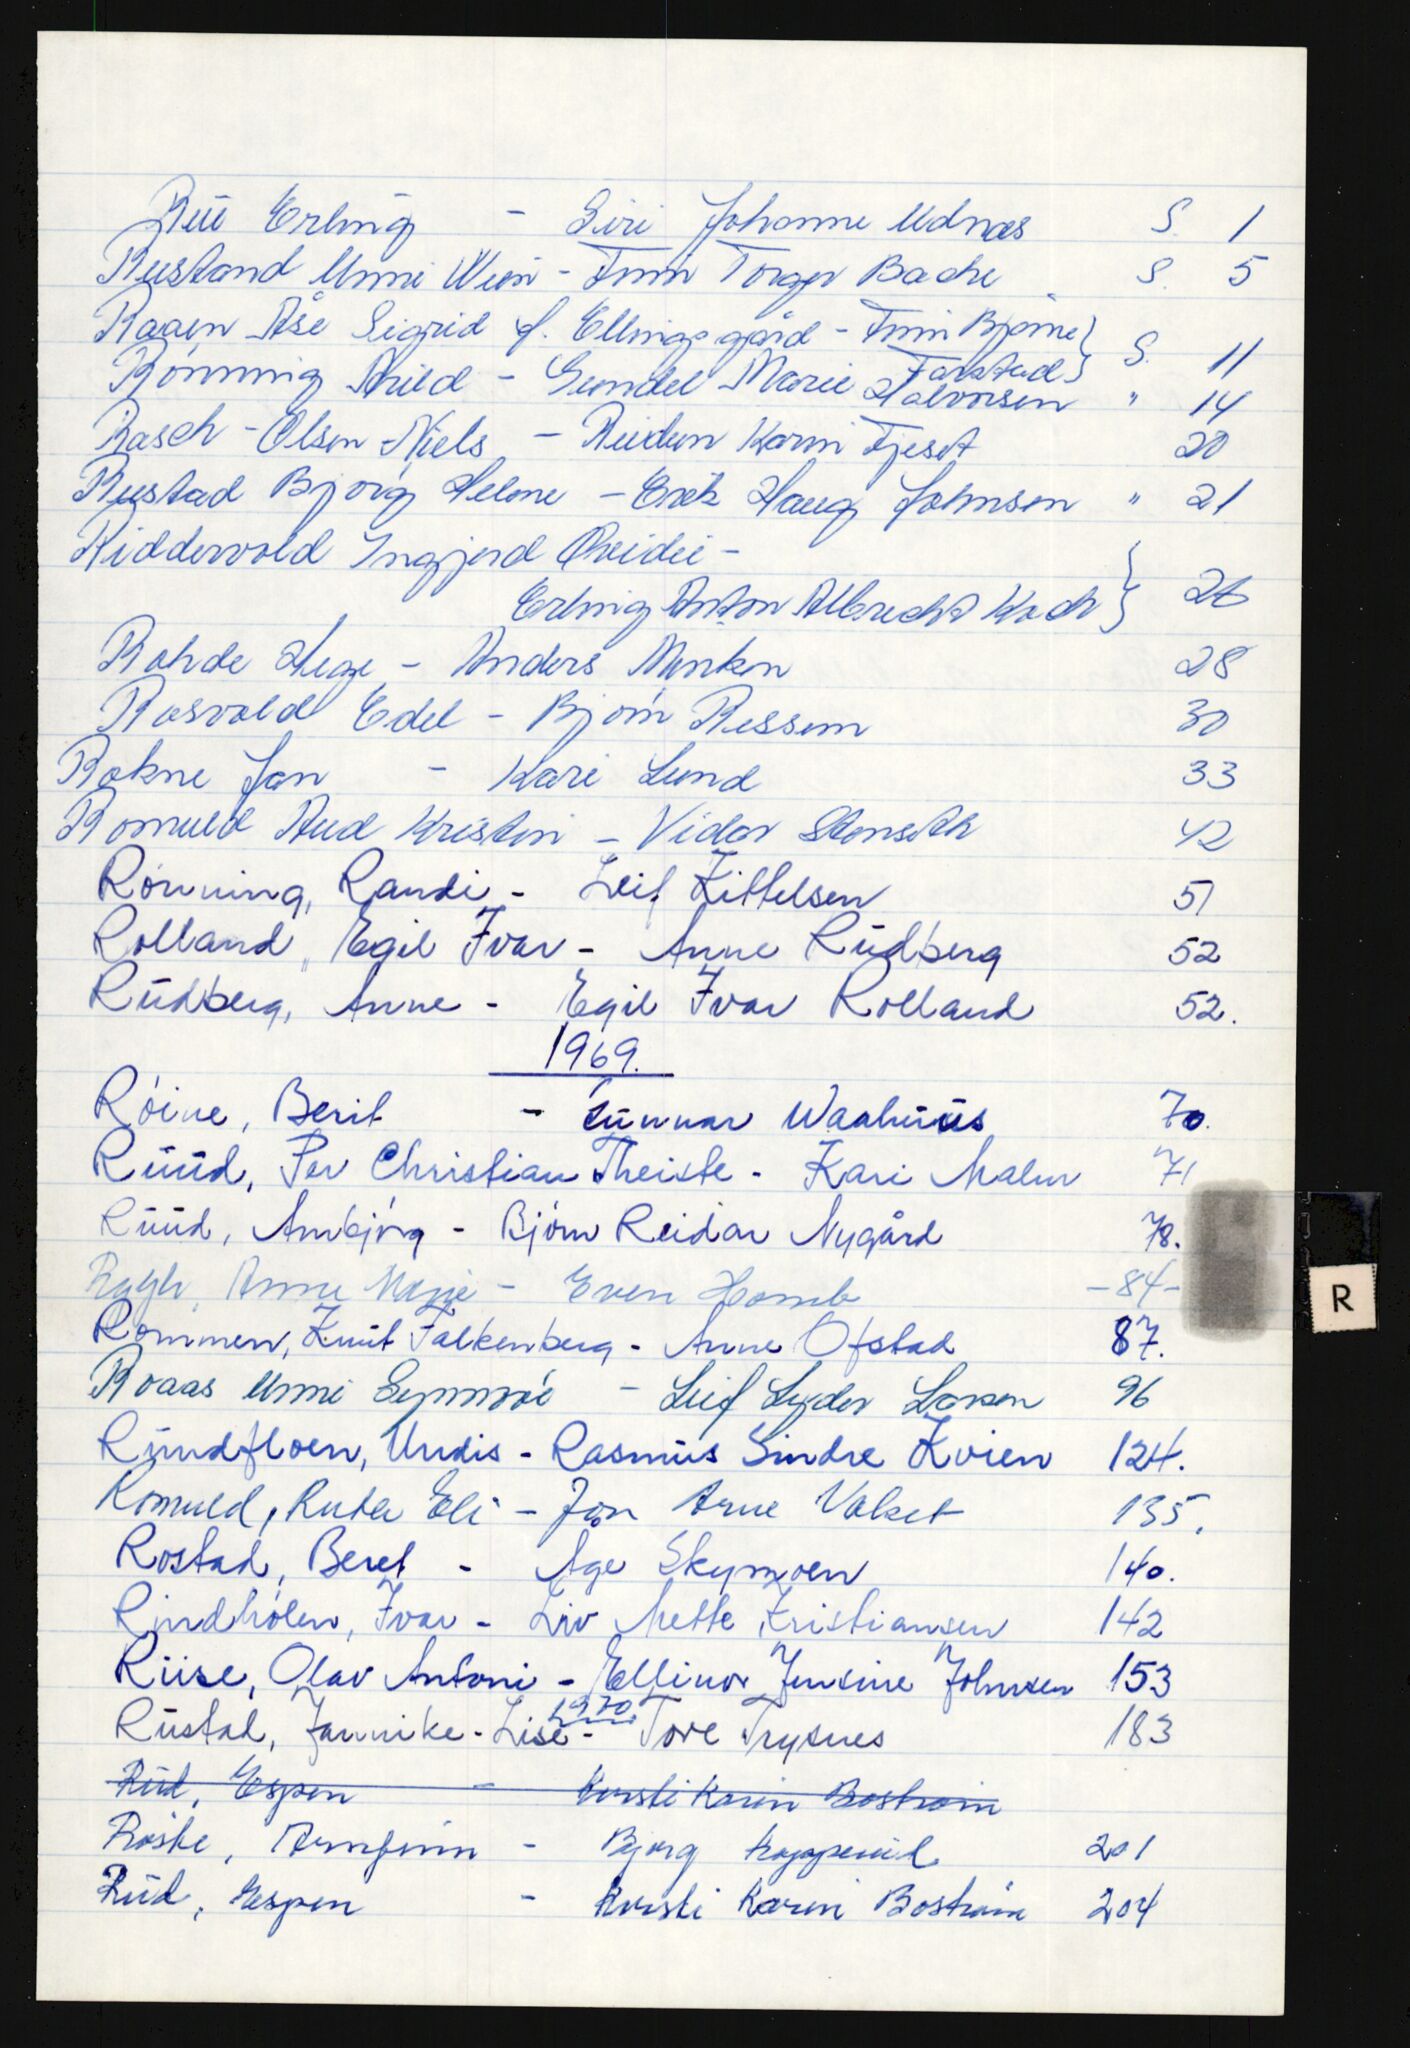 Ruu Erling - Siri Johanne Udnæs S. 1
Rustand Unni Wein - Finn Torger Bache S. 5
Raaen Åse Sigrid f. Ellingsgård - Finn Bjørne }
Farstad } S. 11
Rönning Arild - Gundel Marie Halvorsen " 14
Rasch-Olsen Niels - Reidun Karin Fjeset 20
Rustad Bjørg Helene - Erik Haug Johnsen " 21
Riddervold Ingjerd Ovidie -
Erling Anton Albrecht Koch } 26
Rohde Hege - Anders Minken 28
Rosvold Edel - Bjørn Ressem 30
Rokne Jan - Kari Lund 33
Romuld Aud Kristin - Vidar Stenseth 42
Rónning, Randi - Leif Kittelsen 51
Rolland, Egil Ivar - Anne Rūdberg 52
Rūdberg, Anne - Egil Ivar Rolland 52.
1969.
Róine, Berit - Gunnar Waahuus 70.
Rūūd, Per Christian Theiste - Kari Malm 71
Rūūd, Ambjórg - Bjórn Reidar Nygård 78.
Anne Marie - Even Homb -84-
Rommen, Knūt Falkenberg - Anne Ofstad 87.
Roaas Unni Synnöve - Leif Lyder Larsen 96
Rūndfloen, Undis - Rasmūs Sindre Kvien 124.
Romuld, Ruth Eli - Jon Arne Valset 135.
Rostad, Beret - Åge Skymoen 140.
Rindhólen, Ivar - Liv Mette Kristiansen 142
Riise, Olav Antoni - Ellinor Jensine Johnsen 153
1970.
Rūstad, Jannike-Lise - Tove Trysnes 183
Rūd, Espen - Kirsti Karin Bostrøm
Røske, Arnfinn - Bjørg 201
Rūd, Espen - Kirsti Karin Bostrøm 204
R